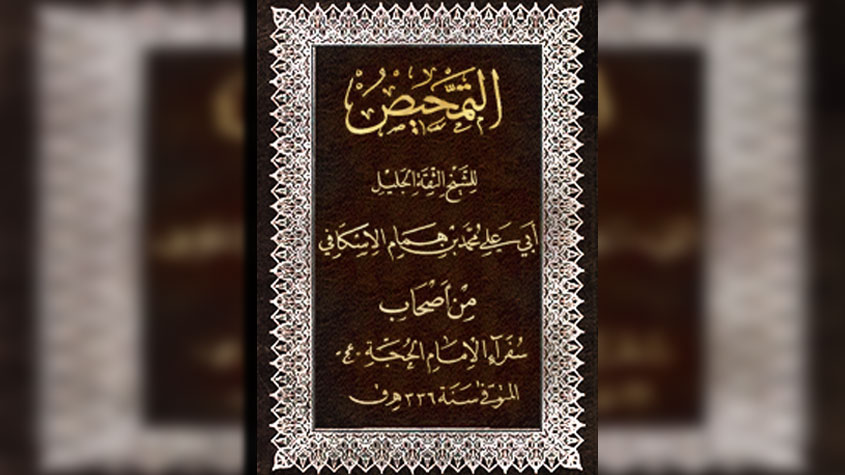 التمحيص
للشيخ الثقة الجليل
أبي علي محمد بن همام الإسكافي
من أصحاب
سفرآء الإمام الحجة -عج-
المتوفى سنة ٣٣٦ هـ ق